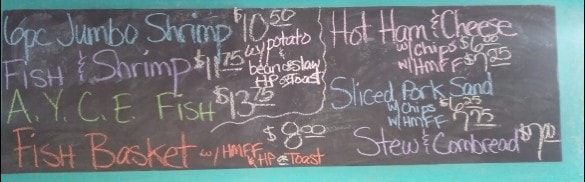 6pc Jumbo Shrimp $10.50
Fish & Shrimp $11.75
w/ potato
&
bean or slaw
HP or Toast
A.Y.C.E. Fish $13.75
Fish Basket w/ HMFF $8.00
w/ HP or Toast
Hot Ham & Cheese
w/ Chips $6.00
w/ HMFF $7.25
Sliced Pork Sand
w/ Chips $6.25
w/ HMFF 7.25
Stew & Cornbread $7.00